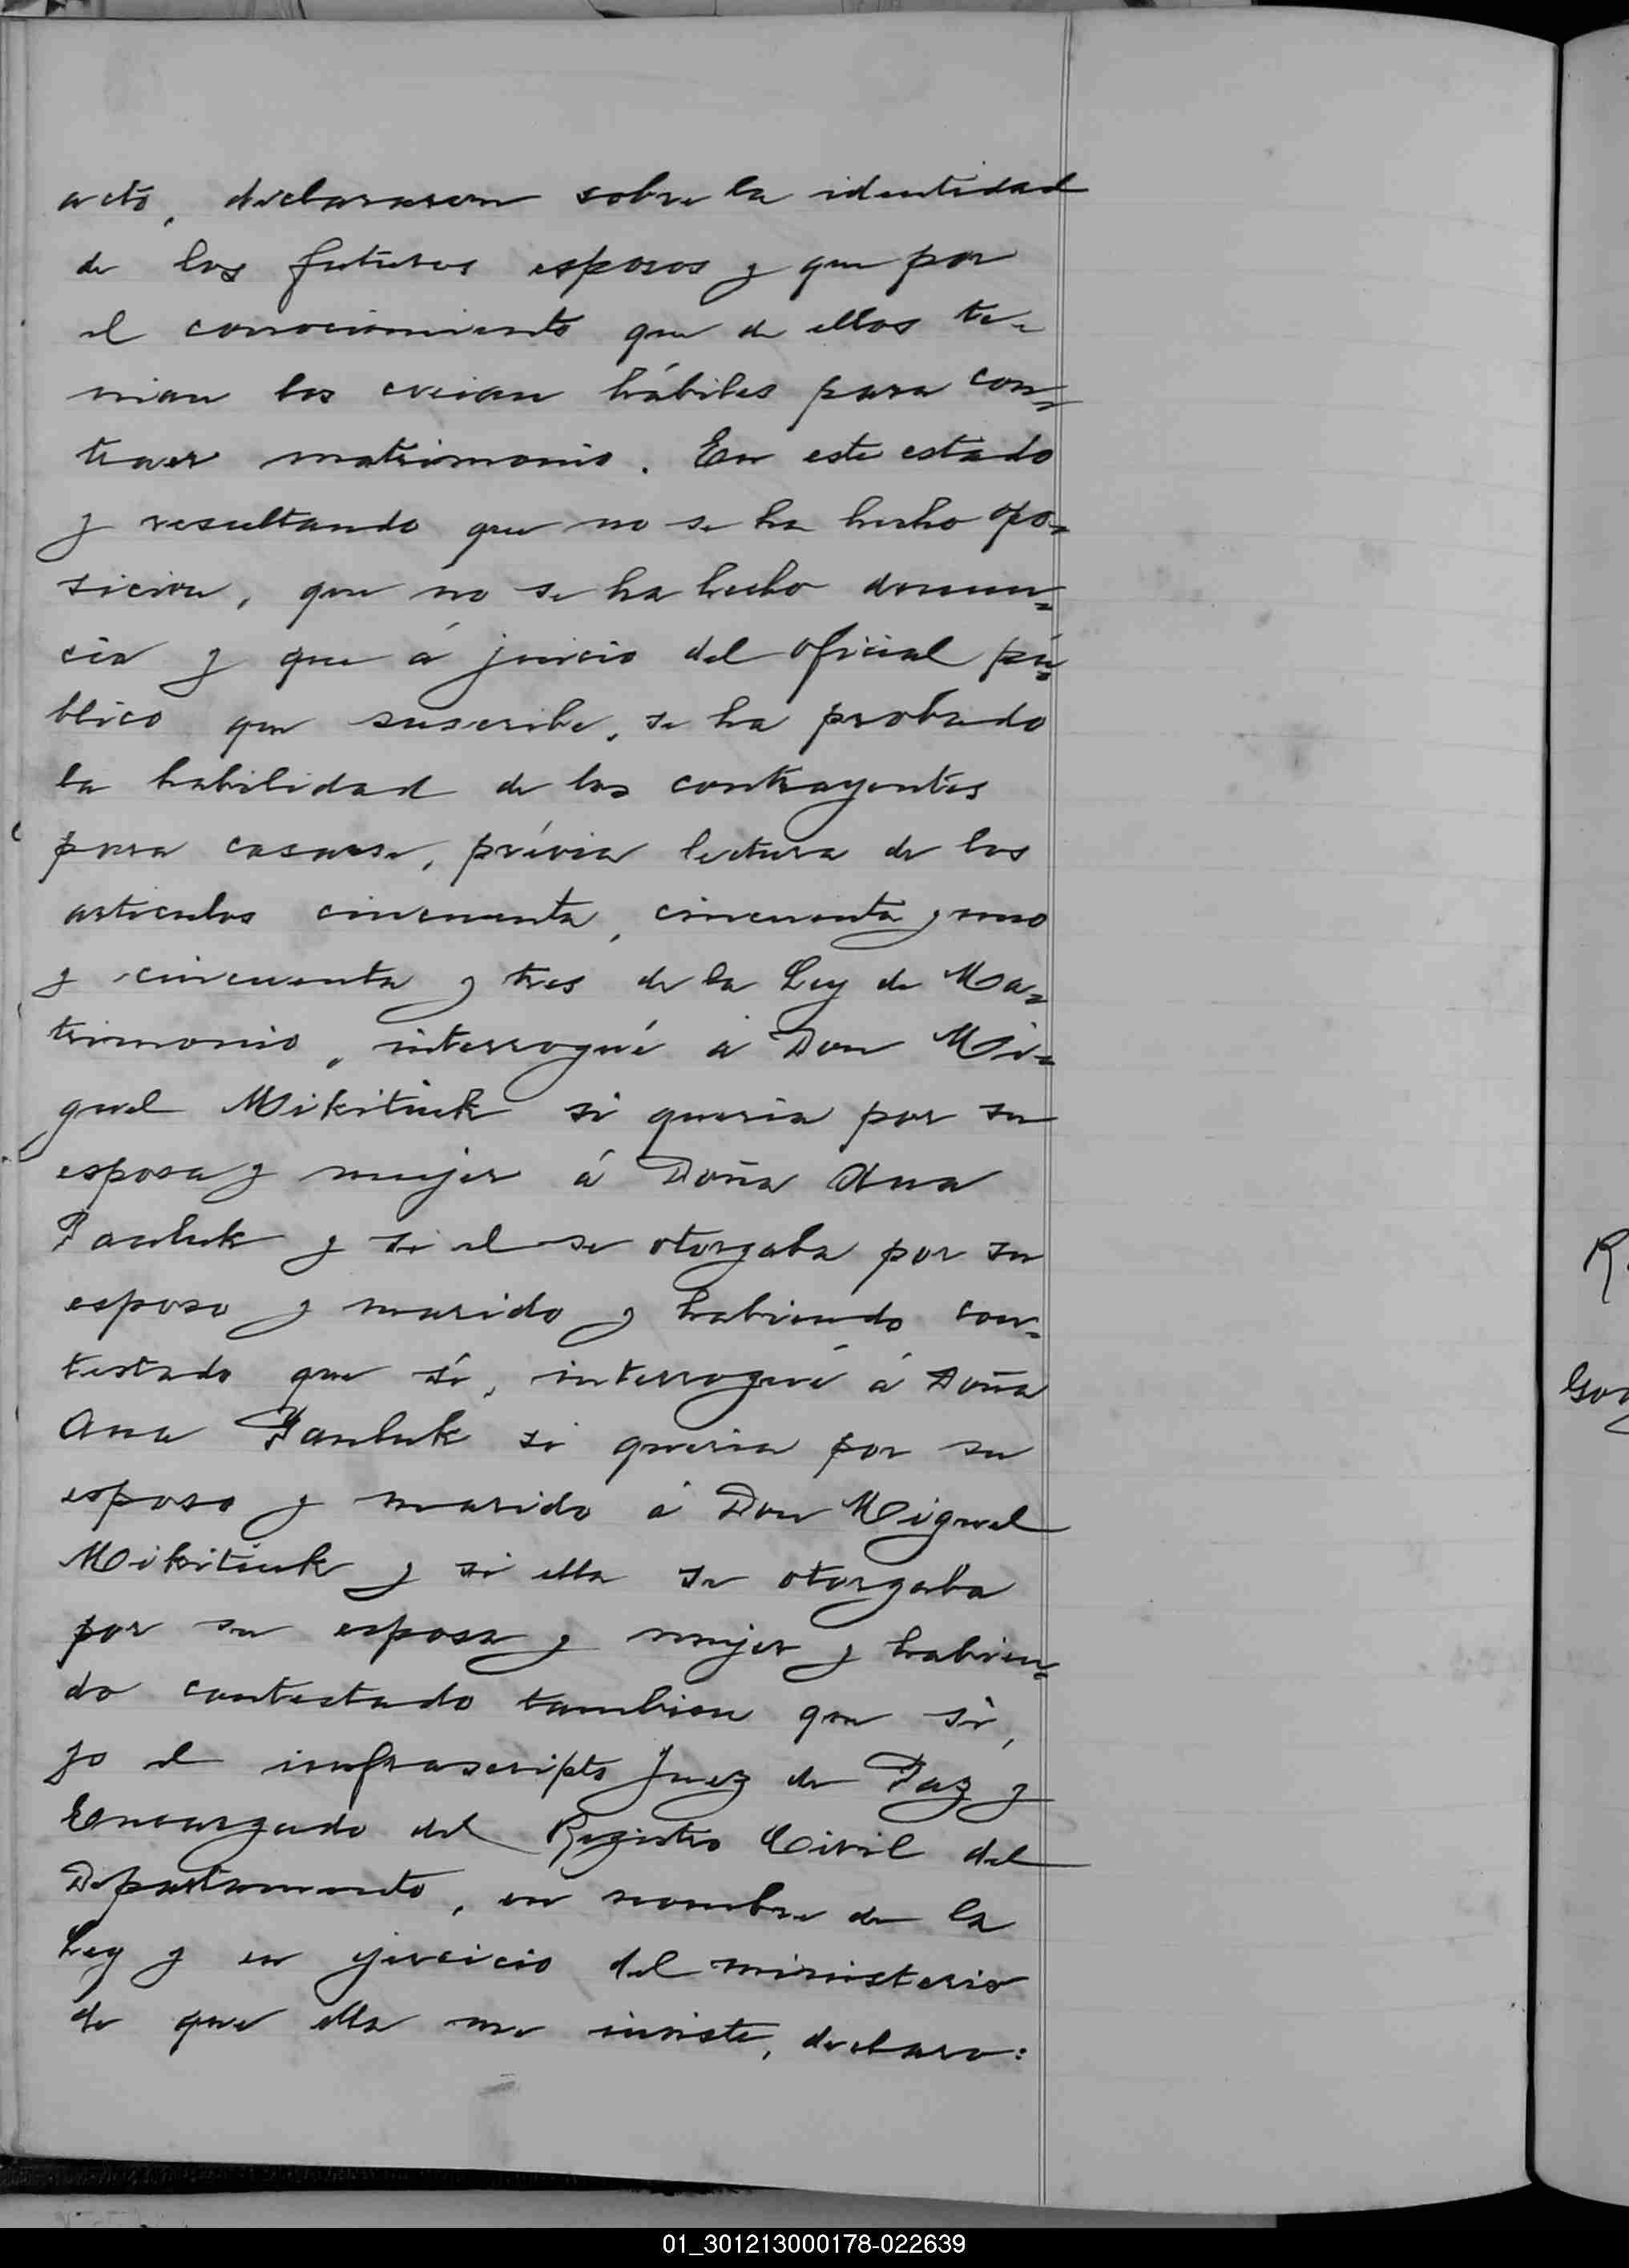 acto, declararon sobre la identidad
de los futuros esposos y que por
el conocimiento que de ellos te-
nian los creian hábiles para con-
traer matrimonio. En este estado
y resultando que no se ha hecho opo-
sicion, que no se ha hecho denun-
cia y que á juicio del oficial pú-
blico que suscribe, se ha probado
la habilidad de los contrayentes
para casarse, prévia lectura de los
articulos cincuenta, cincuenta y uno
y cincuenta y tres de la Ley de Ma-
trimonio, interrogué á Don Mi-
guel Mikitiuk si queria por su
esposa y mujer á Doña Ana
Pauluk y si el se otorgaba por su
esposo y marido y habiendo con-
testado que sí, interrogué á Doña
Ana Pauluk si queria por su
esposo y marido á Don Miguel
Mikitiuk y si ella se otorgaba
por su esposa y mujer y habien-
do contestado tambien que sí,
yo el infrascripto Juez de Paz y
Encargado del Registro Civil del
Departamento, en nombre de la
Ley y en ejercicio del ministerio
de que ella me inviste, declaro:
R.
Gon
01_301213000178-022639